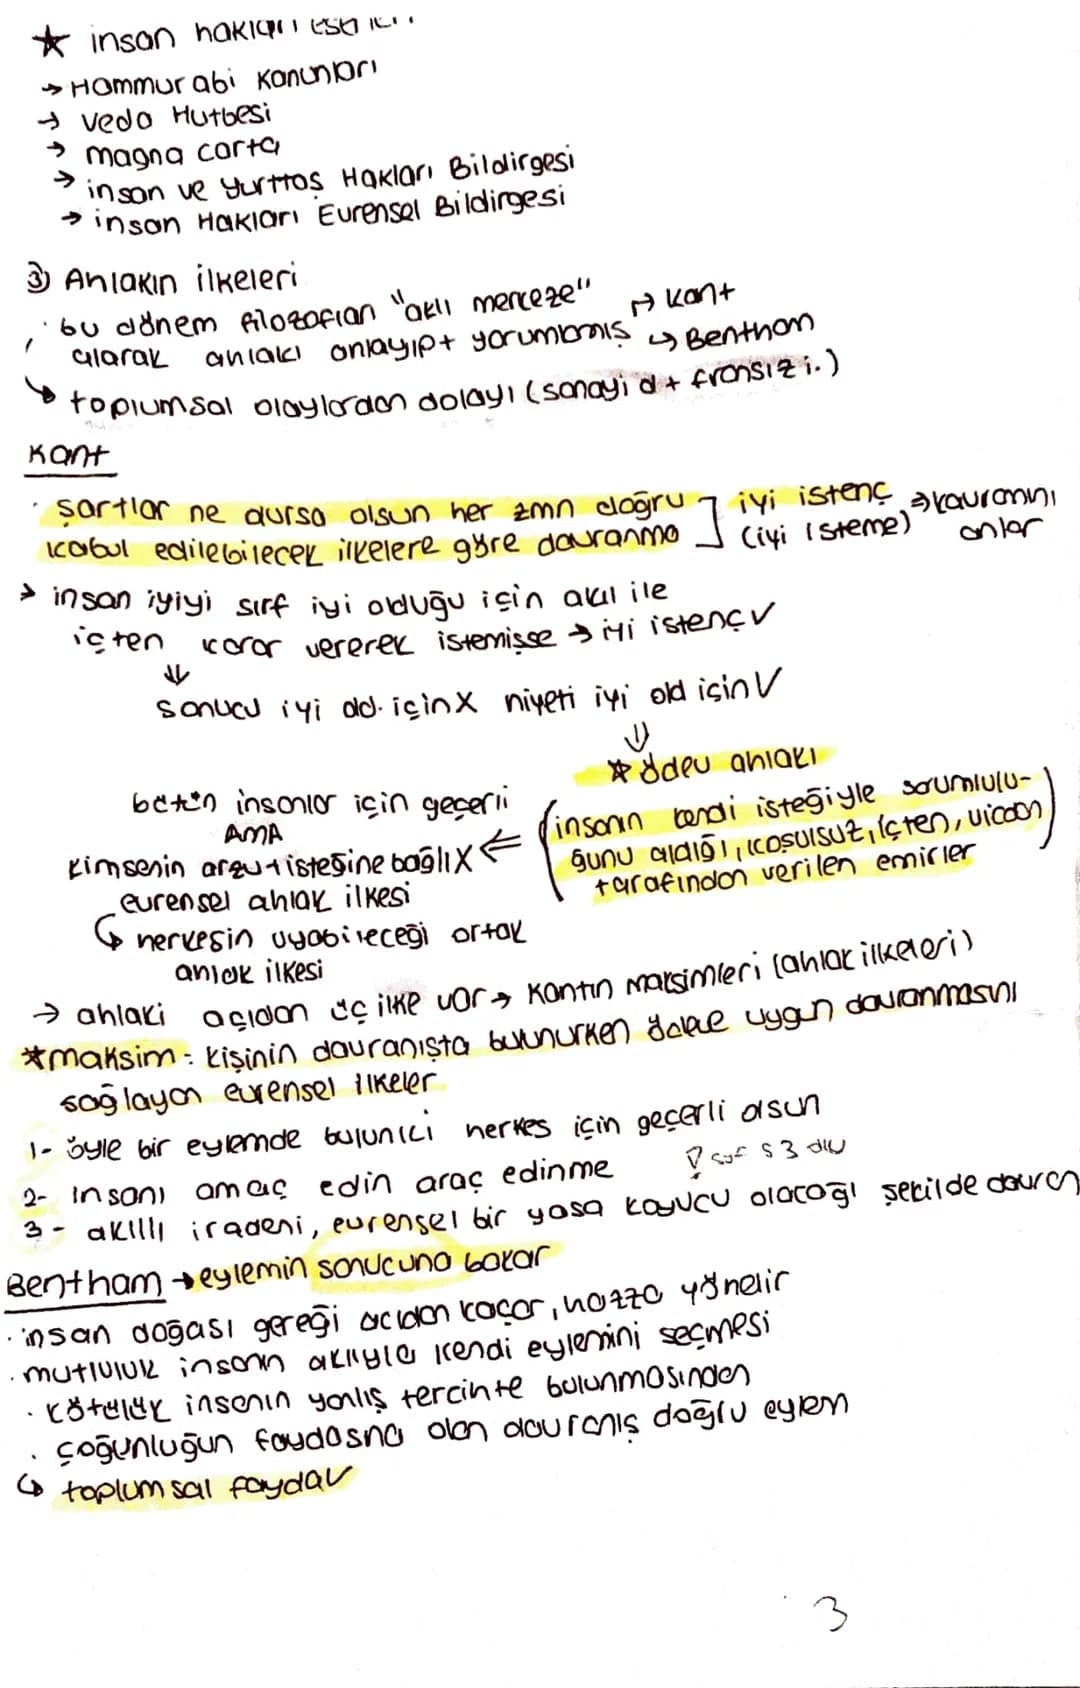 ★ insan hakları
→ Hammurabi Kanunları
→ veda Hutbesi
→ magna carta
→ insan ve Yurttaş Hakları Bildirgesi
→ insan Hakları Evrensel Bildirgesi
③ Ahlakın ilkeleri
· bu dönem filozofları "aklı merkeze" → Kant
alarak ahlakı anlayıp+ yorumlamış ↳ Bentham
↳ toplumsal olaylardan dolayı (sanayi d + fransız i.)
Kant
· şartlar ne olursa olsun her zmn doğru ] iyi istenç ⇒ kavramını
kabul edilebilecek ilkelere göre davranma ] (iyi isteme) anlar
> insan iyiyi sırf iyi olduğu için akıl ile
içten karar vererek istemişse → iyi istenç ✓
⇓
sonucu iyi old. için X niyeti iyi old için ✓
⇓
★ ödev ahlakı
bütün insanlar için geçerli
AMA
(insanın kendi isteğiyle sorumlulu-
ğunu aldığı, koşulsuz, içten, vicdan
tarafından verilen emirler)
kimsenin arzu+isteğine bağlı X ⇐
evrensel ahlak ilkesi
↳ herkesin uyabileceği ortak
ahlak ilkesi
→ ahlaki açıdan üç ilke var → Kantın maksimleri (ahlak ilkeleri)
★maksim: kişinin davranışta bulunurken uygun davranmasını
sağlayan evrensel ilkeler
1- öyle bir eylemde bulun ki herkes için geçerli olsun
2- insanı amaç edin araç edinme
3- akıllı iradeni, evrensel bir yasa koyucu olacağı şekilde davran
Bentham → eylemin sonucuna bakar
· insan doğası gereği acıdan kaçar, hazza yönelir
· mutluluk insanın aklıyla kendi eylemini seçmesi
· kötülük insanın yanlış tercihte bulunmasından
· çoğunluğun faydasına olan davranış doğru eylem
↳ toplumsal fayda ✓
3